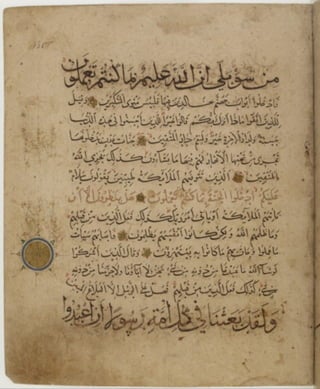 من سوء بلى ان الله عليم بما كنتم تعملون
فادخلوا ابواب جهنم خالدين فيها فلبئس مثوى المتكبرين وقيل
للذين اتقوا ماذا انزل ربكم قالوا خيرا للذين احسنوا في هذه الدنيا
حسنة ولدار الاخرة خير ولنعم دار المتقين جنات عدن يدخلونها
تجري من تحتها الانهار لهم فيها ما يشاؤن كذلك يجزي الله
المتقين الذين تتوفيهم الملائكة طيبين يقولون سلام
عليكم ادخلوا الجنة بما كنتم تعملون هل ينظرون الا ان
تاتيهم الملائكة او ياتي امر ربك كذلك فعل الذين من قبلهم
وما ظلمهم الله ولكن كانوا انفسهم يظلمون فاصابهم سيات
ما عملوا وحاق بهم ما كانوا به يستهزؤن وقال الذين اشركوا
لو شاء الله ما عبدنا من دونه من شيء نحن ولا اباؤنا ولا حرمنا من دونه
من شيء كذلك فعل الذين من قبلهم فهل على الرسل الا البلاغ المبين
ولقد بعثنا في كل امة رسولا ان اعبدوا